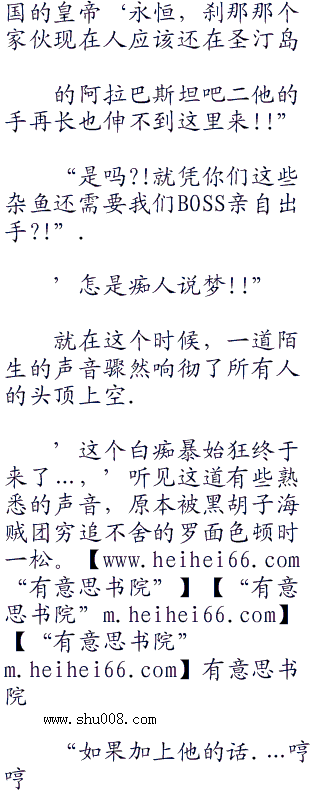 国的皇帝‘永恒，刹那那个
家伙现在人应该还在圣汀岛
的阿拉巴斯坦吧二他的
手再长也伸不到这里来!!”
“是吗?!就凭你们这些
杂鱼还需要我们BOSS亲自出
手?!”.
’怎是痴人说梦!!”
就在这个时候，一道陌
生的声音骤然响彻了所有人
的头顶上空.
’这个白痴暴始狂终于
来了...，’听见这道有些熟
悉的声音，原本被黑胡子海
贼团穷追不舍的罗面色顿时
一松。【www.heihei66.com
“有意思书院”】【“有意
思书院”m.heihei66.com】
【“有意思书院”
m.heihei66.com】有意思书
院
www.shu008.com
“如果加上他的话....哼
哼